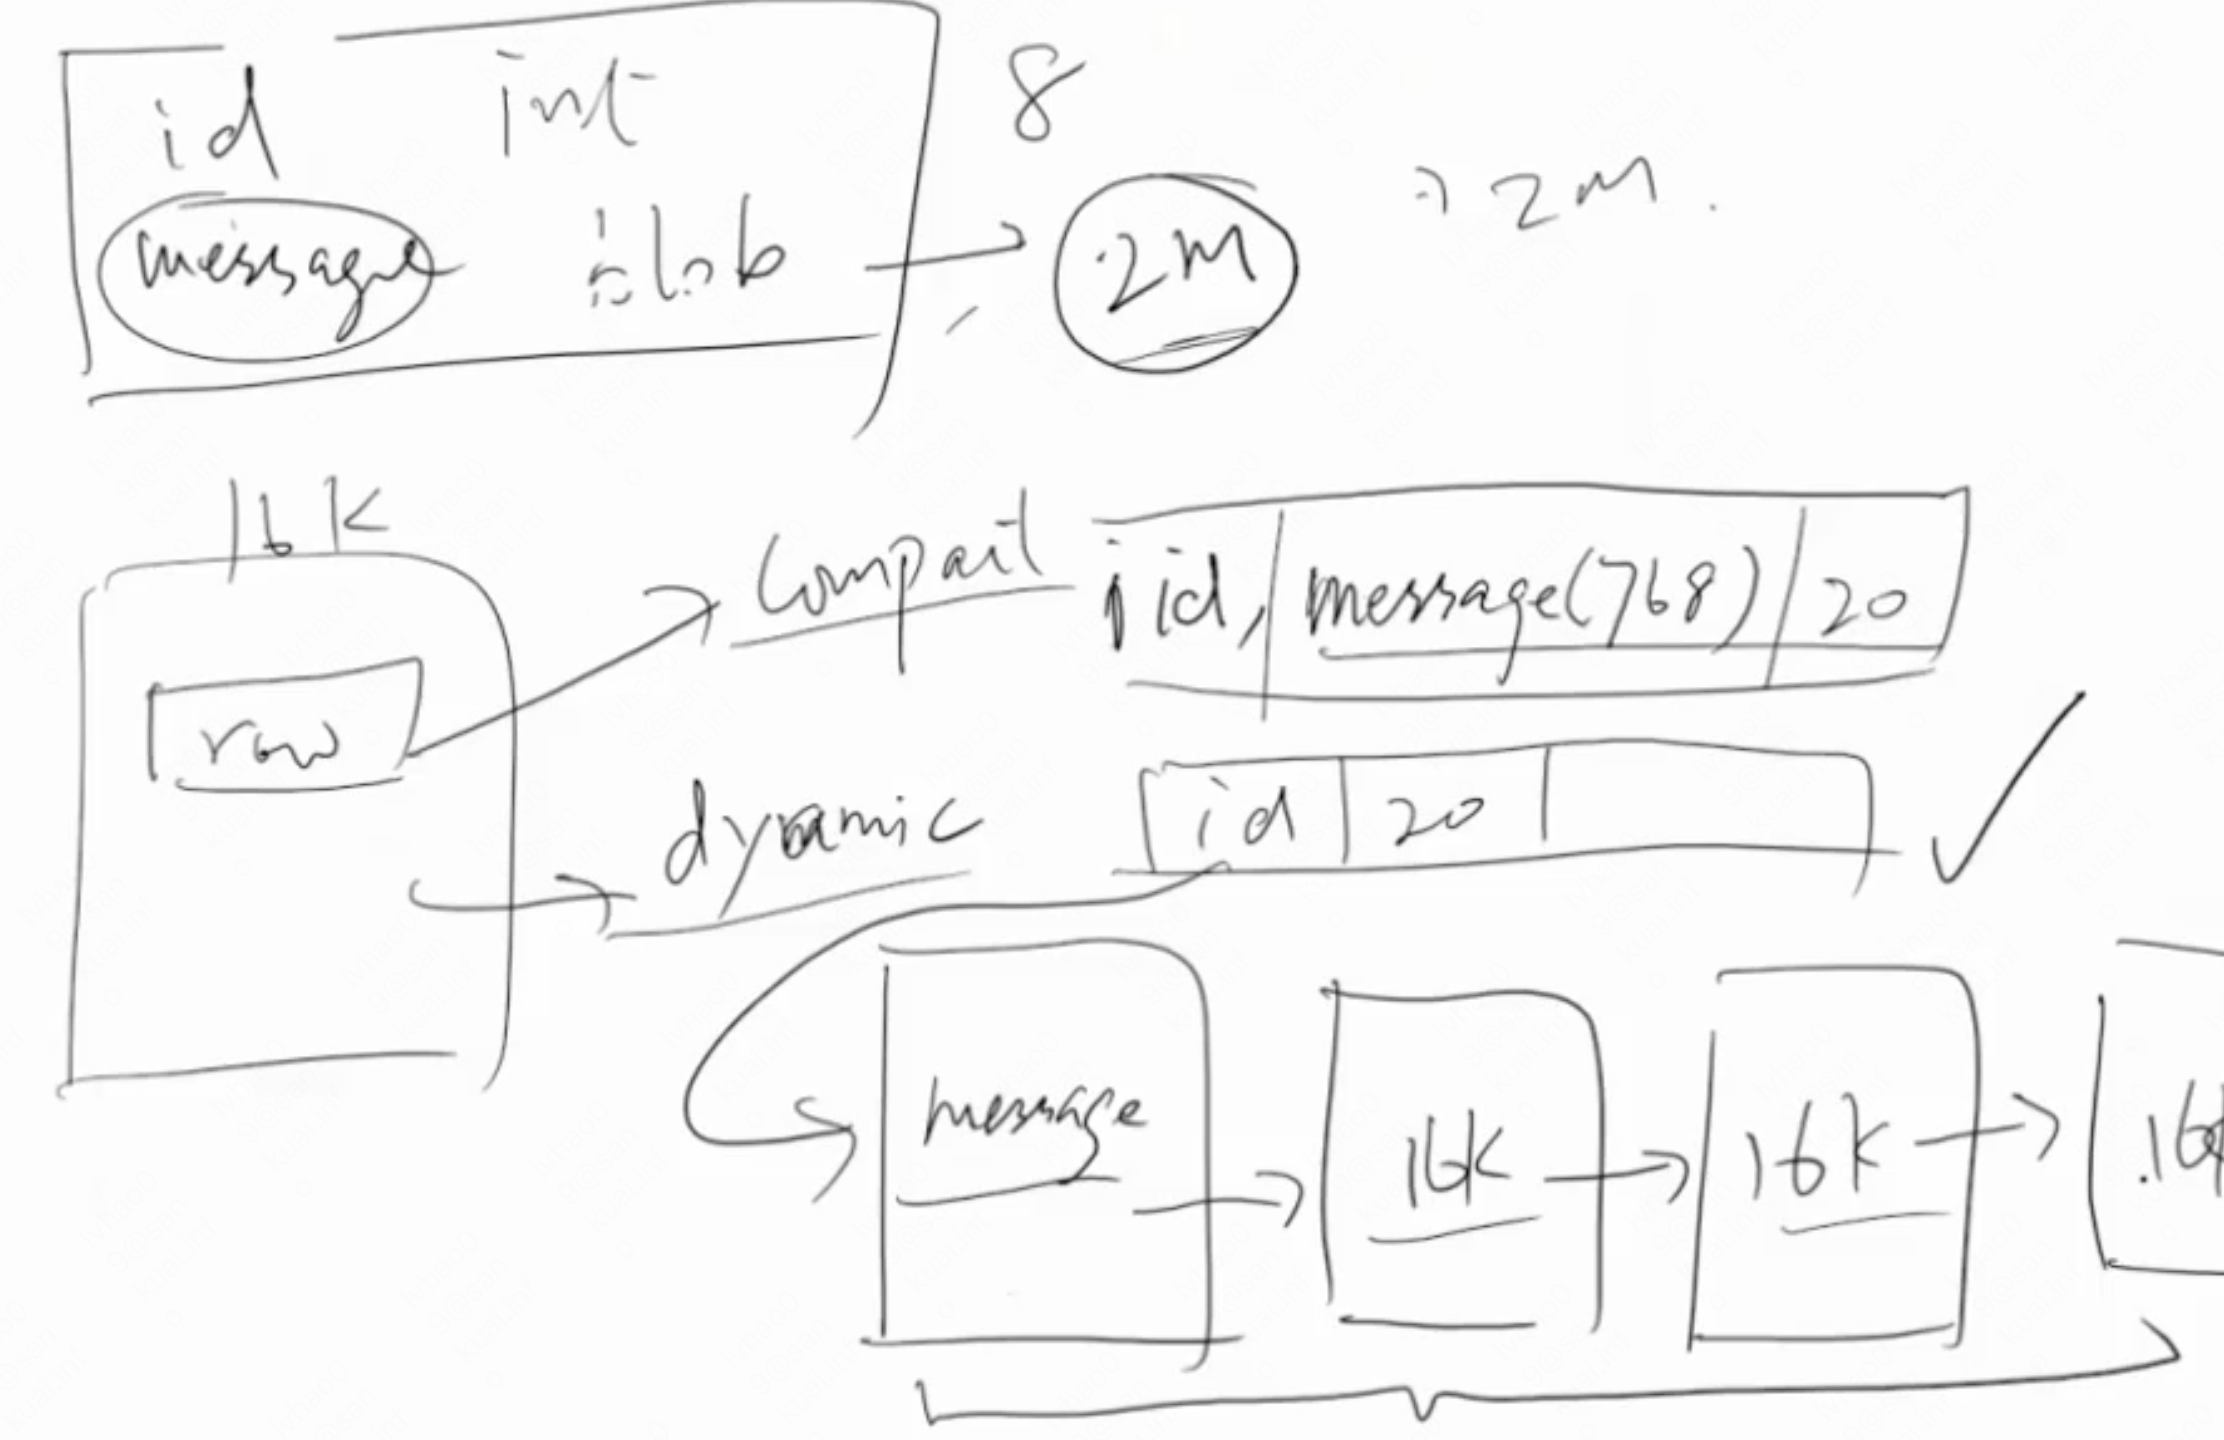 id int 8
message blob 2M 72M.
16K
compact id, message(768) 20
row
dynamic id 20
message 16K 16K 16